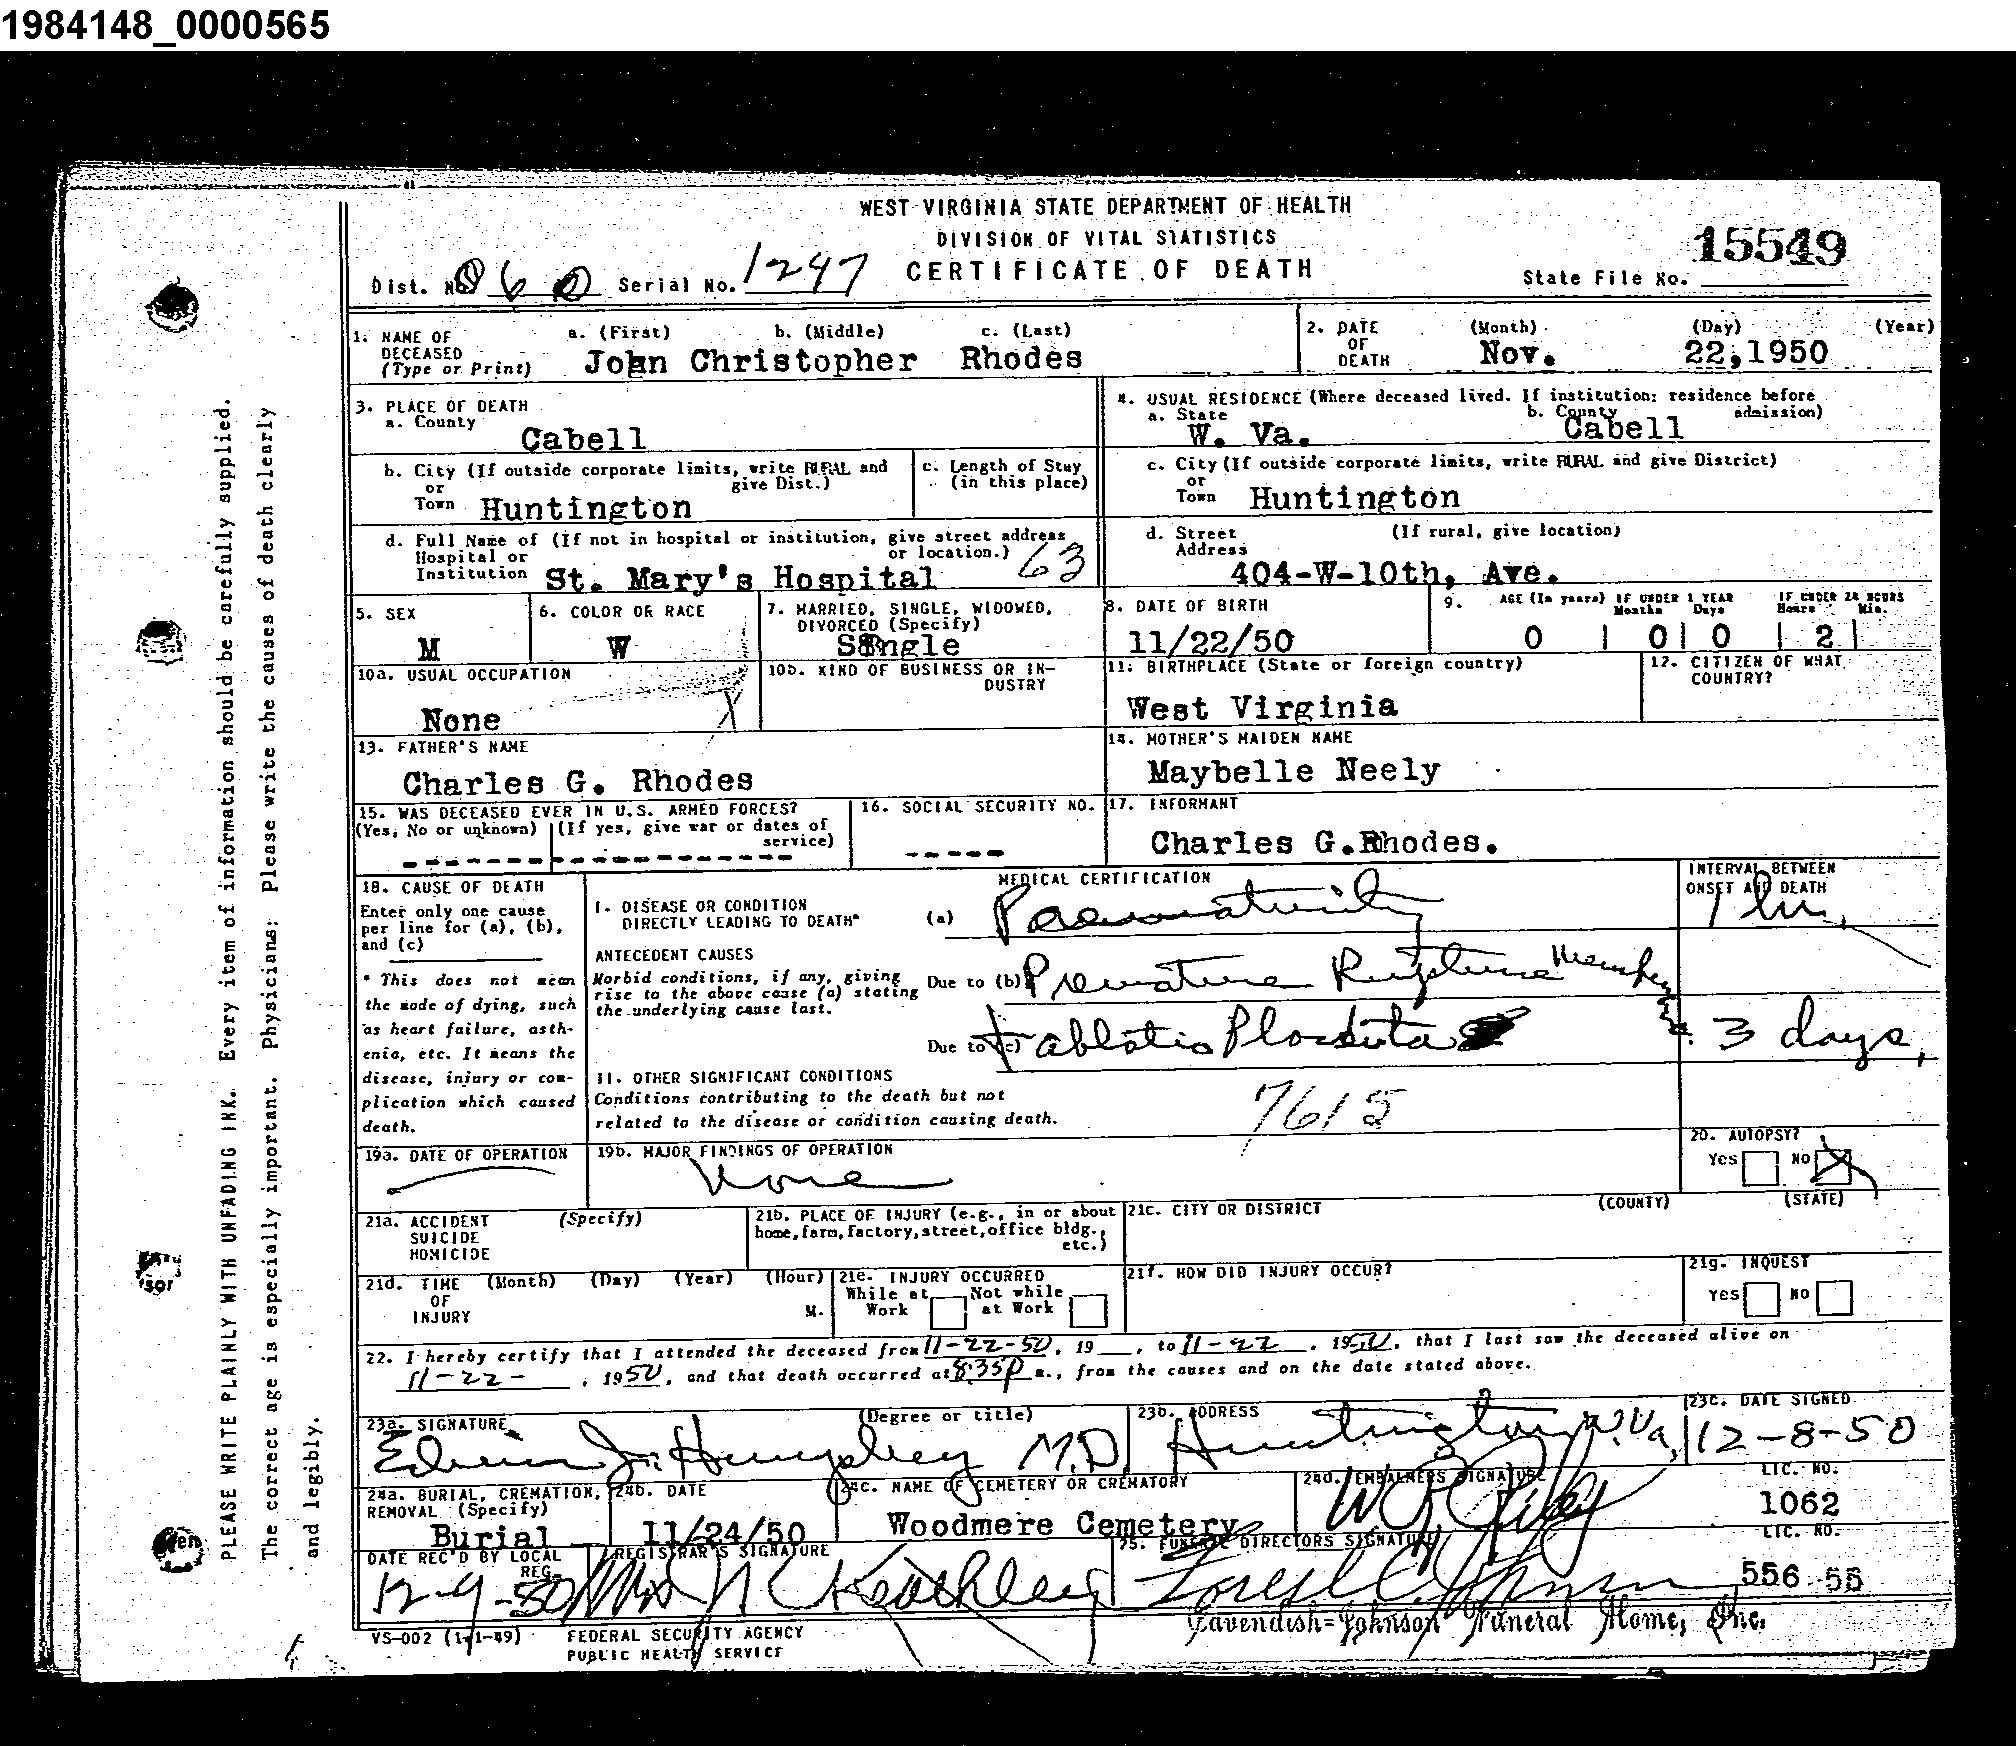 1984148_0000565
WEST VIRGINIA STATE DEPARTMENT OF HEALTH
DIVISION OF VITAL STATISTICS
CERTIFICATE OF DEATH
Dist. No. 060 Serial No. 1247
State File No. 15549
1. NAME OF DECEASED (Type or Print) a. (First) b. (Middle) c. (Last)
John Christopher Rhodes
2. DATE OF DEATH (Month) (Day) (Year)
Nov. 22,1950
3. PLACE OF DEATH
a. County
Cabell
4. USUAL RESIDENCE (Where deceased lived. If institution: residence before admission)
a. State b. County
W. Va. Cabell
b. City (If outside corporate limits, write RURAL and give Dist.)
or Town Huntington
c. Length of Stay (in this place)
c. City (If outside corporate limits, write RURAL and give District)
or Town Huntington
d. Full Name of (If not in hospital or institution, give street address or location.)
Hospital or Institution St. Mary's Hospital 63
d. Street Address (If rural, give location)
404-W-10th, Ave.
5. SEX
M
6. COLOR OR RACE
W
7. MARRIED, SINGLE, WIDOWED, DIVORCED (Specify)
Single
8. DATE OF BIRTH
11/22/50
9. AGE (In years) IF UNDER 1 YEAR Months Days IF UNDER 24 HOURS Hours Min.
0 | 0| 0 | 2|
10a. USUAL OCCUPATION
None X
10b. KIND OF BUSINESS OR INDUSTRY
11. BIRTHPLACE (State or foreign country)
West Virginia
12. CITIZEN OF WHAT COUNTRY?
13. FATHER'S NAME
Charles G. Rhodes
14. MOTHER'S MAIDEN NAME
Maybelle Neely
15. WAS DECEASED EVER IN U.S. ARMED FORCES?
(Yes, No or unknown) (If yes, give war or dates of service)
-------------------
16. SOCIAL SECURITY NO.
-----
17. INFORMANT
Charles G.Rhodes.
18. CAUSE OF DEATH
Enter only one cause per line for (a), (b), and (c)
* This does not mean the mode of dying, such as heart failure, asthenia, etc. It means the disease, injury or complication which caused death.
MEDICAL CERTIFICATION
INTERVAL BETWEEN ONSET AND DEATH
I. DISEASE OR CONDITION DIRECTLY LEADING TO DEATH*
(a) Praematurity
ANTECEDENT CAUSES
Morbid conditions, if any, giving rise to the above cause (a) stating the underlying cause last.
Due to (b) Premature Rupture
Due to (c) + ablatio Placenta 3 days,
II. OTHER SIGNIFICANT CONDITIONS
Conditions contributing to the death but not related to the disease or condition causing death.
7615
19a. DATE OF OPERATION
19b. MAJOR FINDINGS OF OPERATION
None
20. AUTOPSY?
Yes No X
21a. ACCIDENT SUICIDE HOMICIDE (Specify)
21b. PLACE OF INJURY (e.g., in or about home, farm, factory, street, office bldg., etc.)
21c. CITY OR DISTRICT (COUNTY) (STATE)
21d. TIME OF INJURY (Month) (Day) (Year) (Hour) M.
21e. INJURY OCCURRED
While at Work Not while at Work
21f. HOW DID INJURY OCCUR?
21g. INQUEST
Yes No
22. I hereby certify that I attended the deceased from 11-22-50, 19__, to 11-22, 1950, that I last saw the deceased alive on
11-22-, 1950, and that death occurred at 8:35P m., from the causes and on the date stated above.
23a. SIGNATURE (Degree or title)
Edwin J. Humphrey M.D.
23b. ADDRESS
Huntington, W.Va,
23c. DATE SIGNED
12-8-50
24a. BURIAL, CREMATION, REMOVAL (Specify)
Burial
24b. DATE
11/24/50
24c. NAME OF CEMETERY OR CREMATORY
Woodmere Cemetery
24d. EMBALMERS SIGNATURE LIC. NO.
1062
DATE REC'D BY LOCAL REG.
12-9-50
REGISTRAR'S SIGNATURE
Keathley
25. FUNERAL DIRECTORS SIGNATURE LIC. NO.
Johnson 556 55
Cavendish-Johnson Funeral Home, Inc.
VS-002 (1-1-49)
FEDERAL SECURITY AGENCY
PUBLIC HEALTH SERVICE
PLEASE WRITE PLAINLY WITH UNFADING INK. Every item of information should be carefully supplied.
The correct age is especially important. Physicians: Please write the causes of death clearly
and legibly.